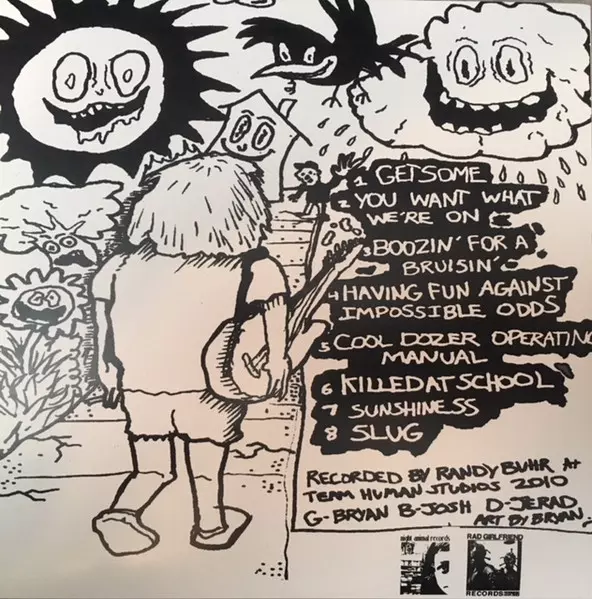 1 GET SOME
2 YOU WANT WHAT
WE'RE ON
3 BOOZIN' FOR A
BRUISIN'
4 HAVING FUN AGAINST
IMPOSSIBLE ODDS
5 COOL DOZER OPERATING
MANUAL
6 KILLED AT SCHOOL
7 SUNSHINESS
8 SLUG
RECORDED BY RANDY BUHR At
TEAM HUMAN STUDIOS 2010
G-BRYAN B-JOSH D-JERAD
ART BY BRYAN
night animal records
RAD GIRLFRIEND
RECORDS